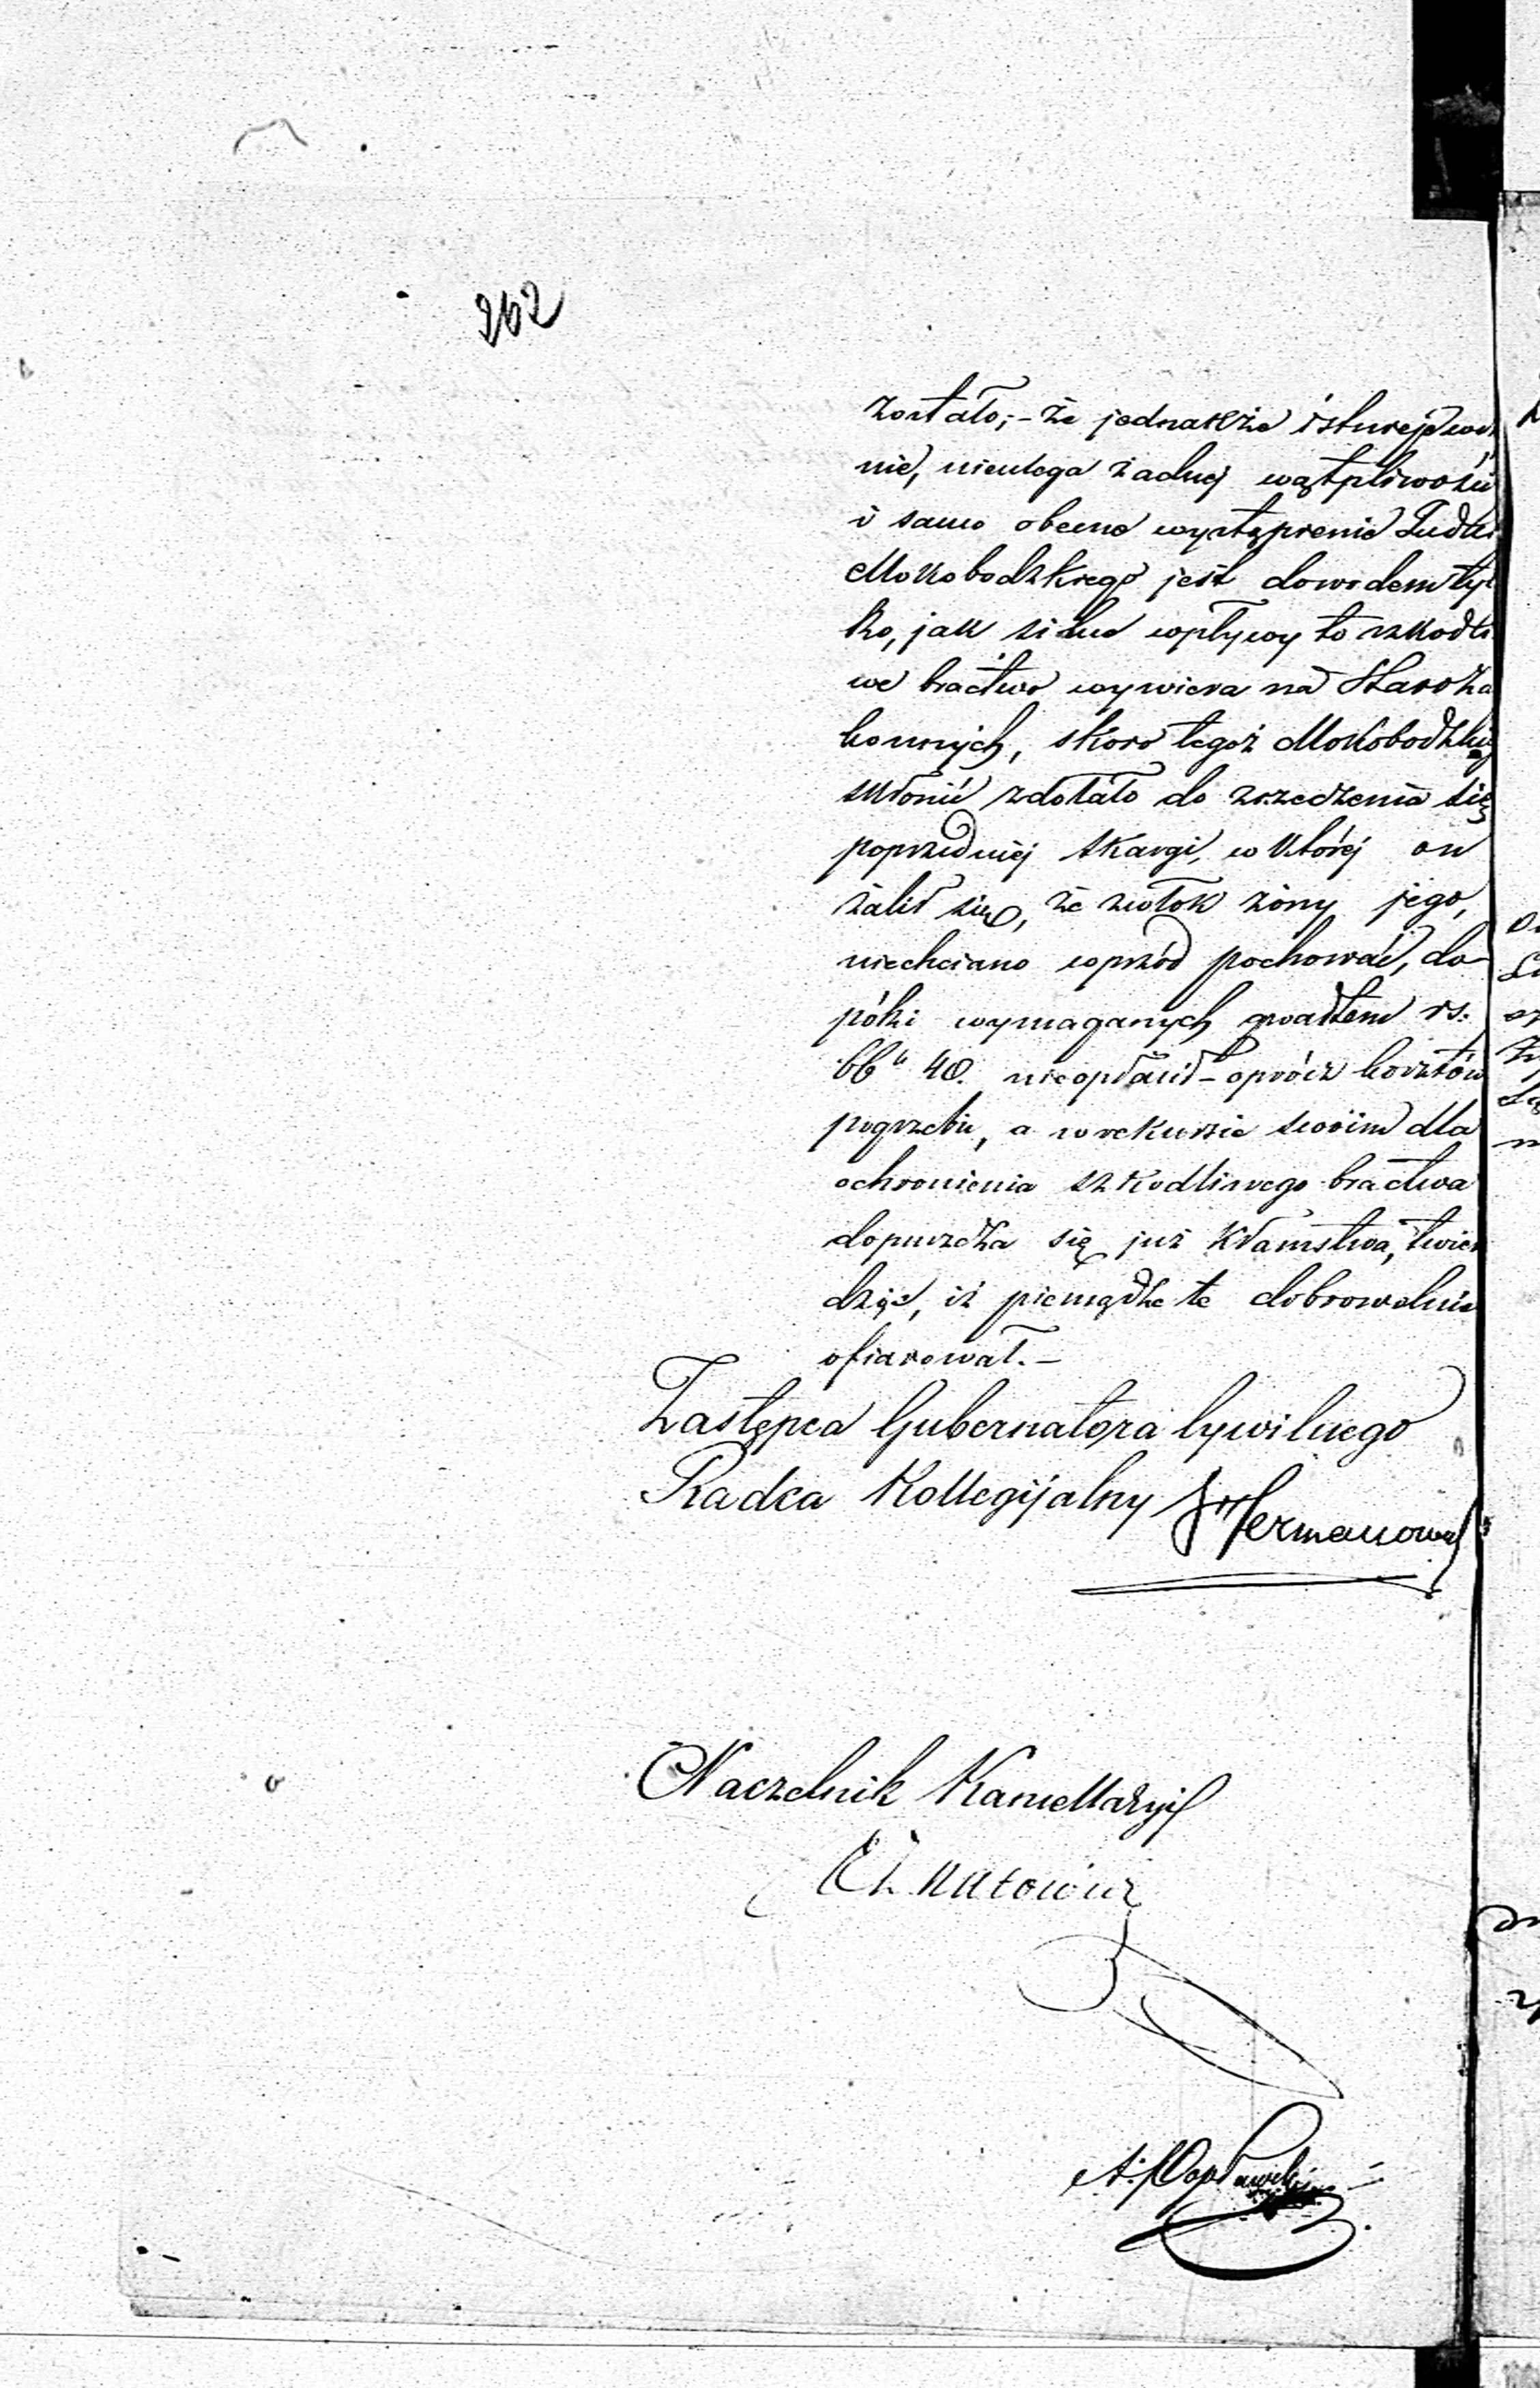 262
zostało; - że jednakże istnieje
nie, nieulega żadnej wątpliwości
i samo obecne wystąpienie Judki
Mokobodzkiego jest dowodem tyl
ko, jak silne wpływy to szkodli
we bractwo wywiera na Staroza
konnych, skoro tegoż Mokobodzkiego
skłonić zdołało do zrzeczenia się
poprzedniej skargi, w której on
żalił się, że zwłok żony jego,
niechciano wprzód pochować, do
póki wymaganych gwałtem rs:
66 " 40. nieopłacił - oprócz kosztów
pogrzebu, a w rekursie swoim dla
ochronienia szkodliwego bractwa
dopuszcza się już kłamstwa, twier
dząc, iż pieniądze te dobrowolnie
ofiarował. -
Zastępca Gubernatora Cywilnego
Radca Kollegijalny Hermanowski
Naczelnik Kancellaryi